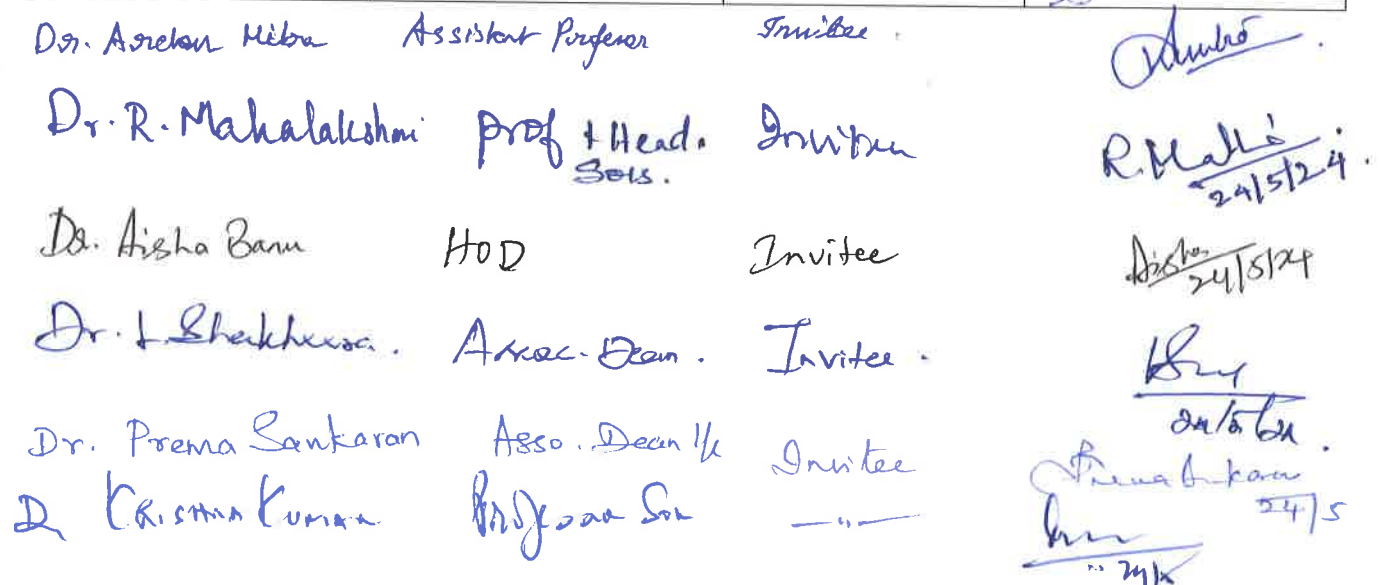 Dr. Mitra Assistant Professor Invitee.
Dr. R. Mahalakshmi Prof & Head. Invitee R. Malli
SoIS. 24/5/24.
Dr. Aisha Banu HOD Invitee Aisha
24/5/24
Dr. Assoc. Dean. Invitee.
24/5/24.
Dr. Prema Sankaran Asso. Dean I/c Invitee Prema Sankaran
24/5
Dr Krishna Kumar Professor —〃—